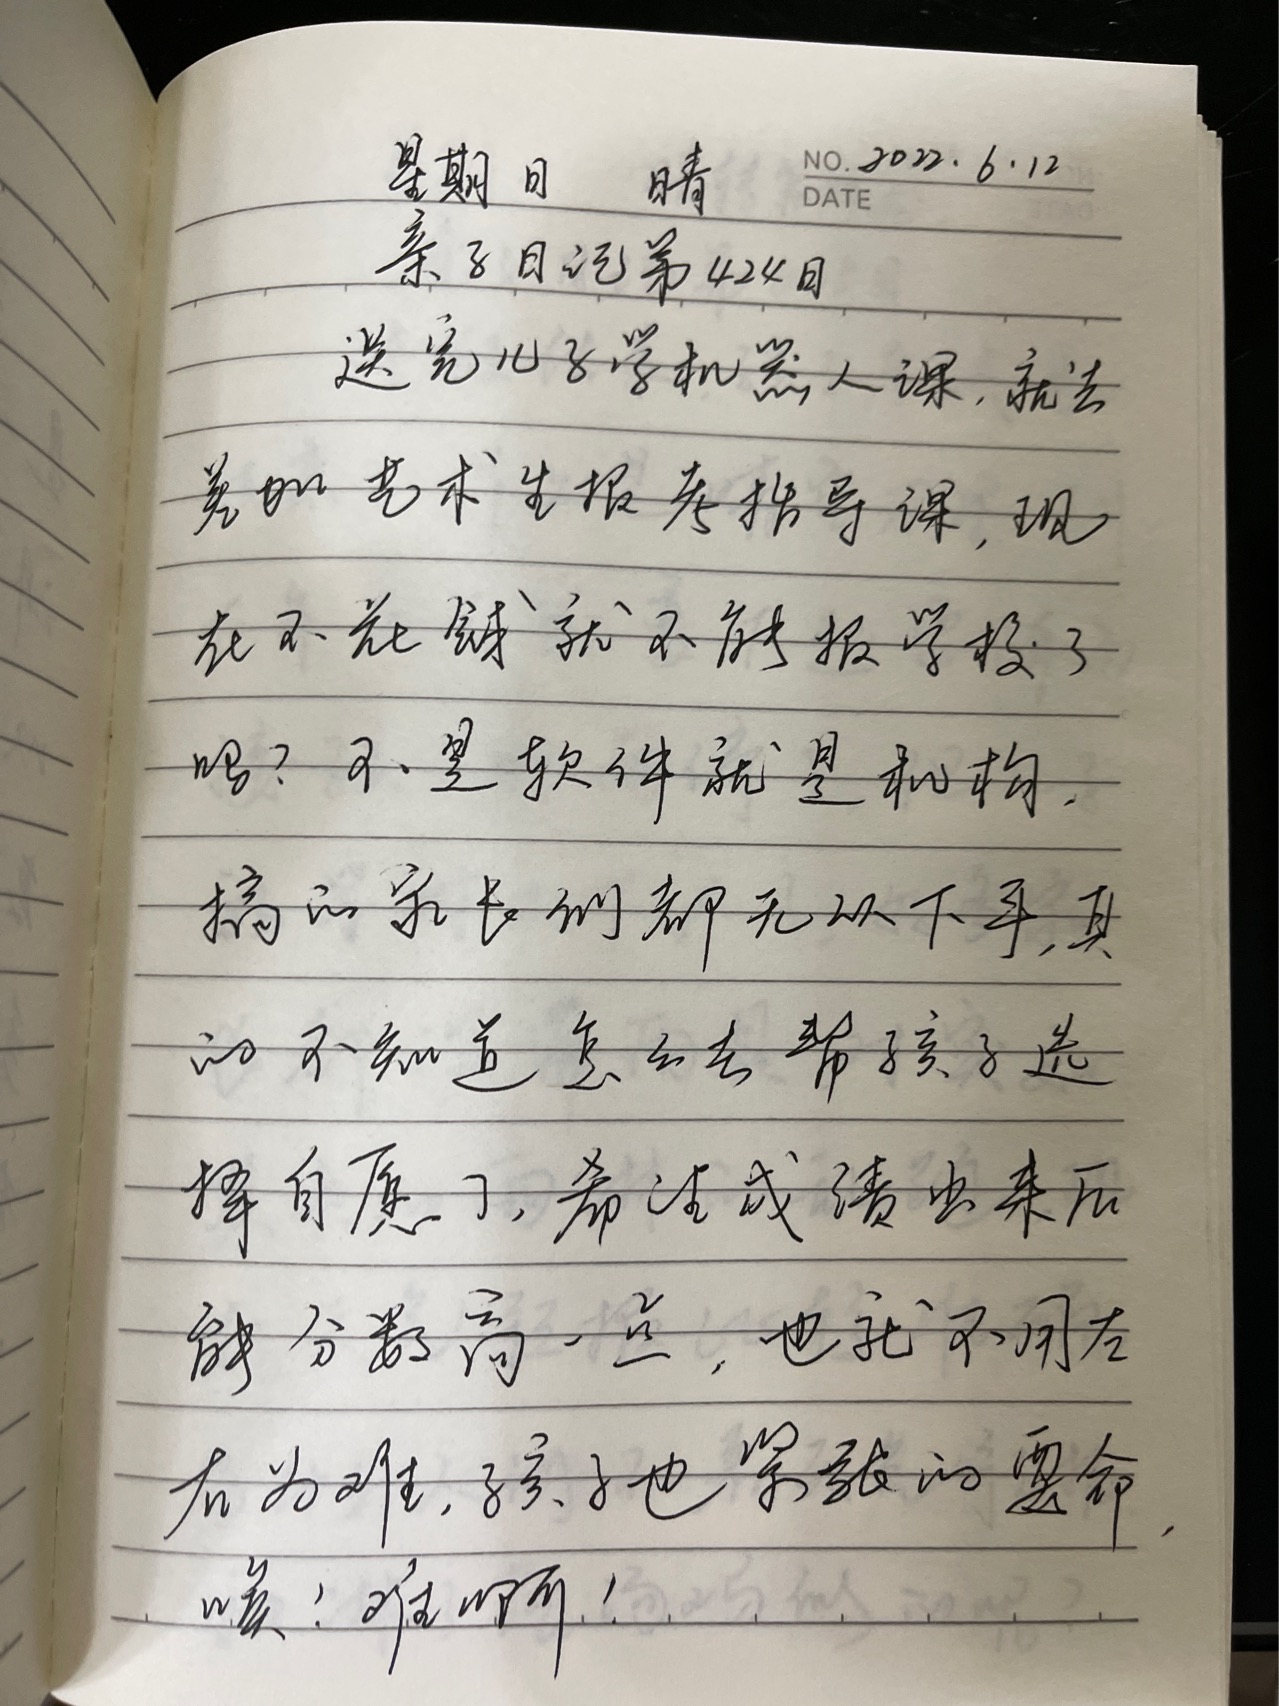 星期日 晴 NO. 2022.6.12
DATE
亲子日记第424日
送完儿子学机器人课,就去
参加艺术生报考指导课,现
在不花钱就不能报学校了
吗?不是软件就是机构,
搞的家长们都无以下手,真
的不知道怎么去帮孩子选
择自愿了,希望成绩出来后
能分数高一点,也就不用左
右为难,孩子也紧张的要命,
唉!难啊!